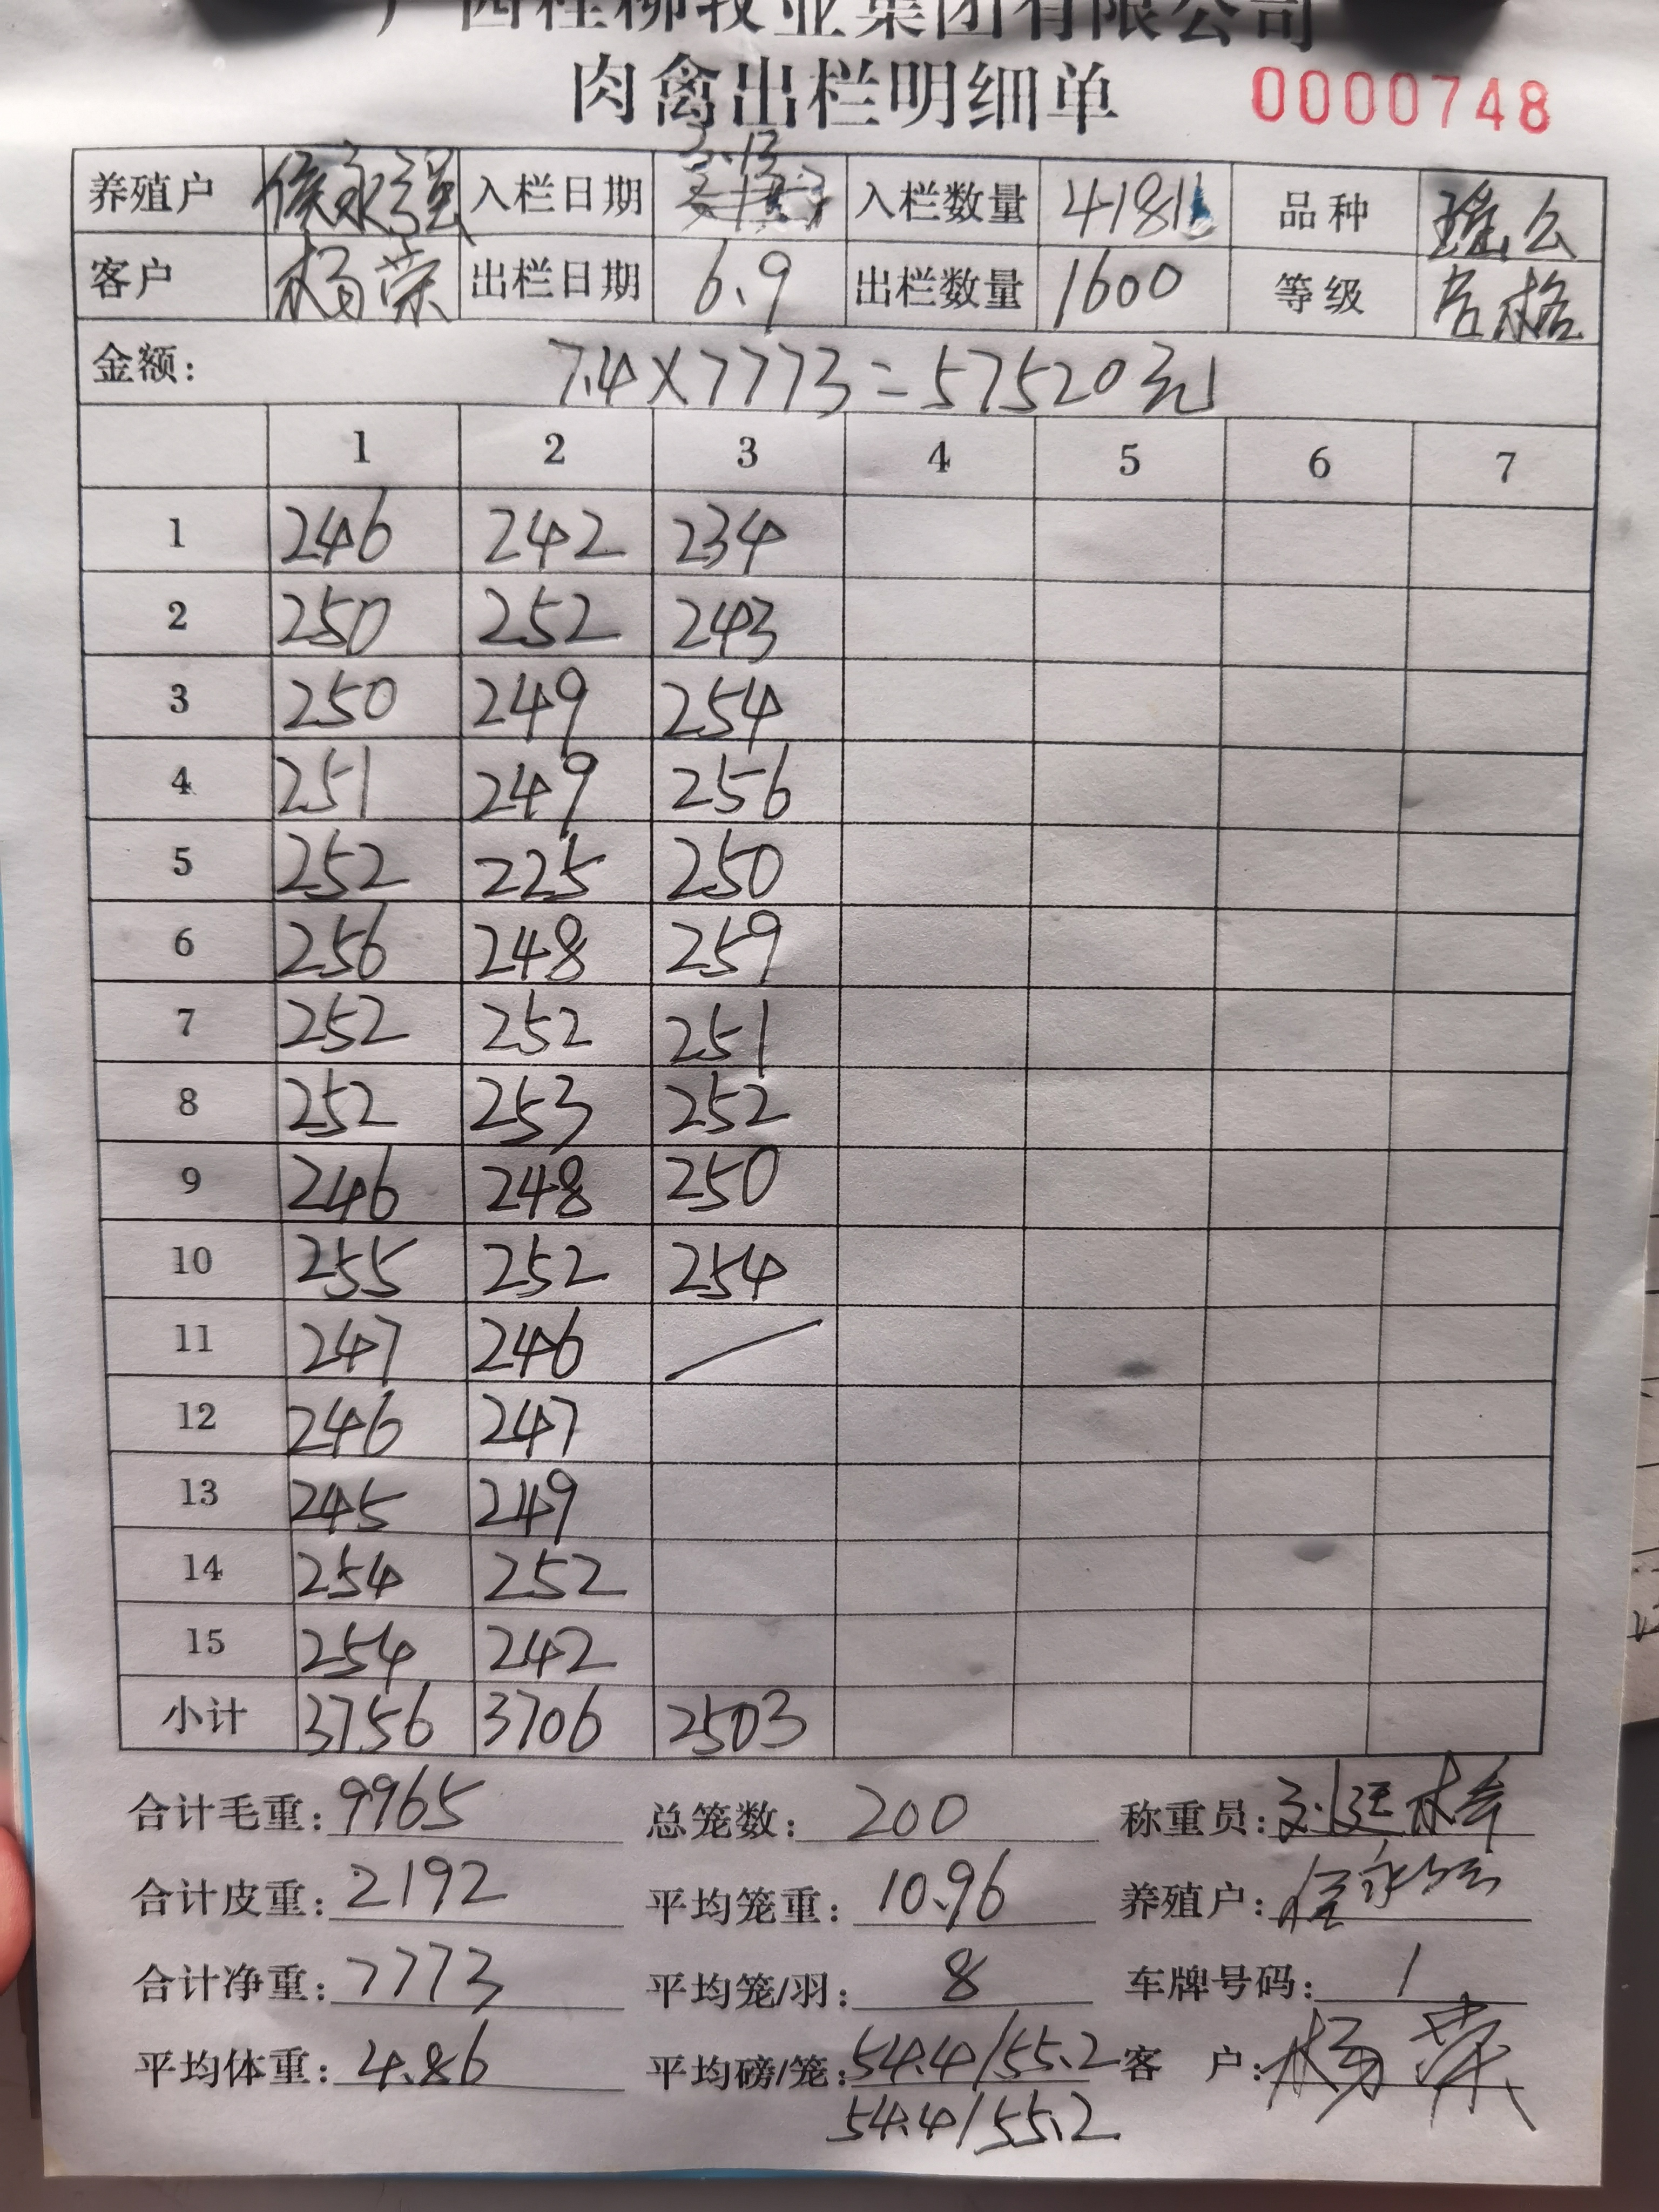 广西桂柳牧业集团有限公司
肉禽出栏明细单 0000748
养殖户 侯永强 入栏日期 3.13 入栏数量 4181 品种 瑶么
客户 杨荣 出栏日期 6.9 出栏数量 1600 等级 合格
金额: 7.4×7773=57520元
1 2 3 4 5 6 7
1 246 242 234
2 250 252 243
3 250 249 254
4 251 249 256
5 252 225 250
6 256 248 259
7 252 252 251
8 252 253 252
9 246 248 250
10 255 252 254
11 247 246
12 246 247
13 245 249
14 254 252
15 254 242
小计 3756 3706 2503
合计毛重: 9965 总笼数: 200 称重员:
合计皮重: 2192 平均笼重: 10.96 养殖户: 侯永强
合计净重: 7773 平均笼/羽: 8 车牌号码: 1
平均体重: 4.86 平均磅/笼: 54.4/55.2 客 户: 杨荣
54.4/55.2